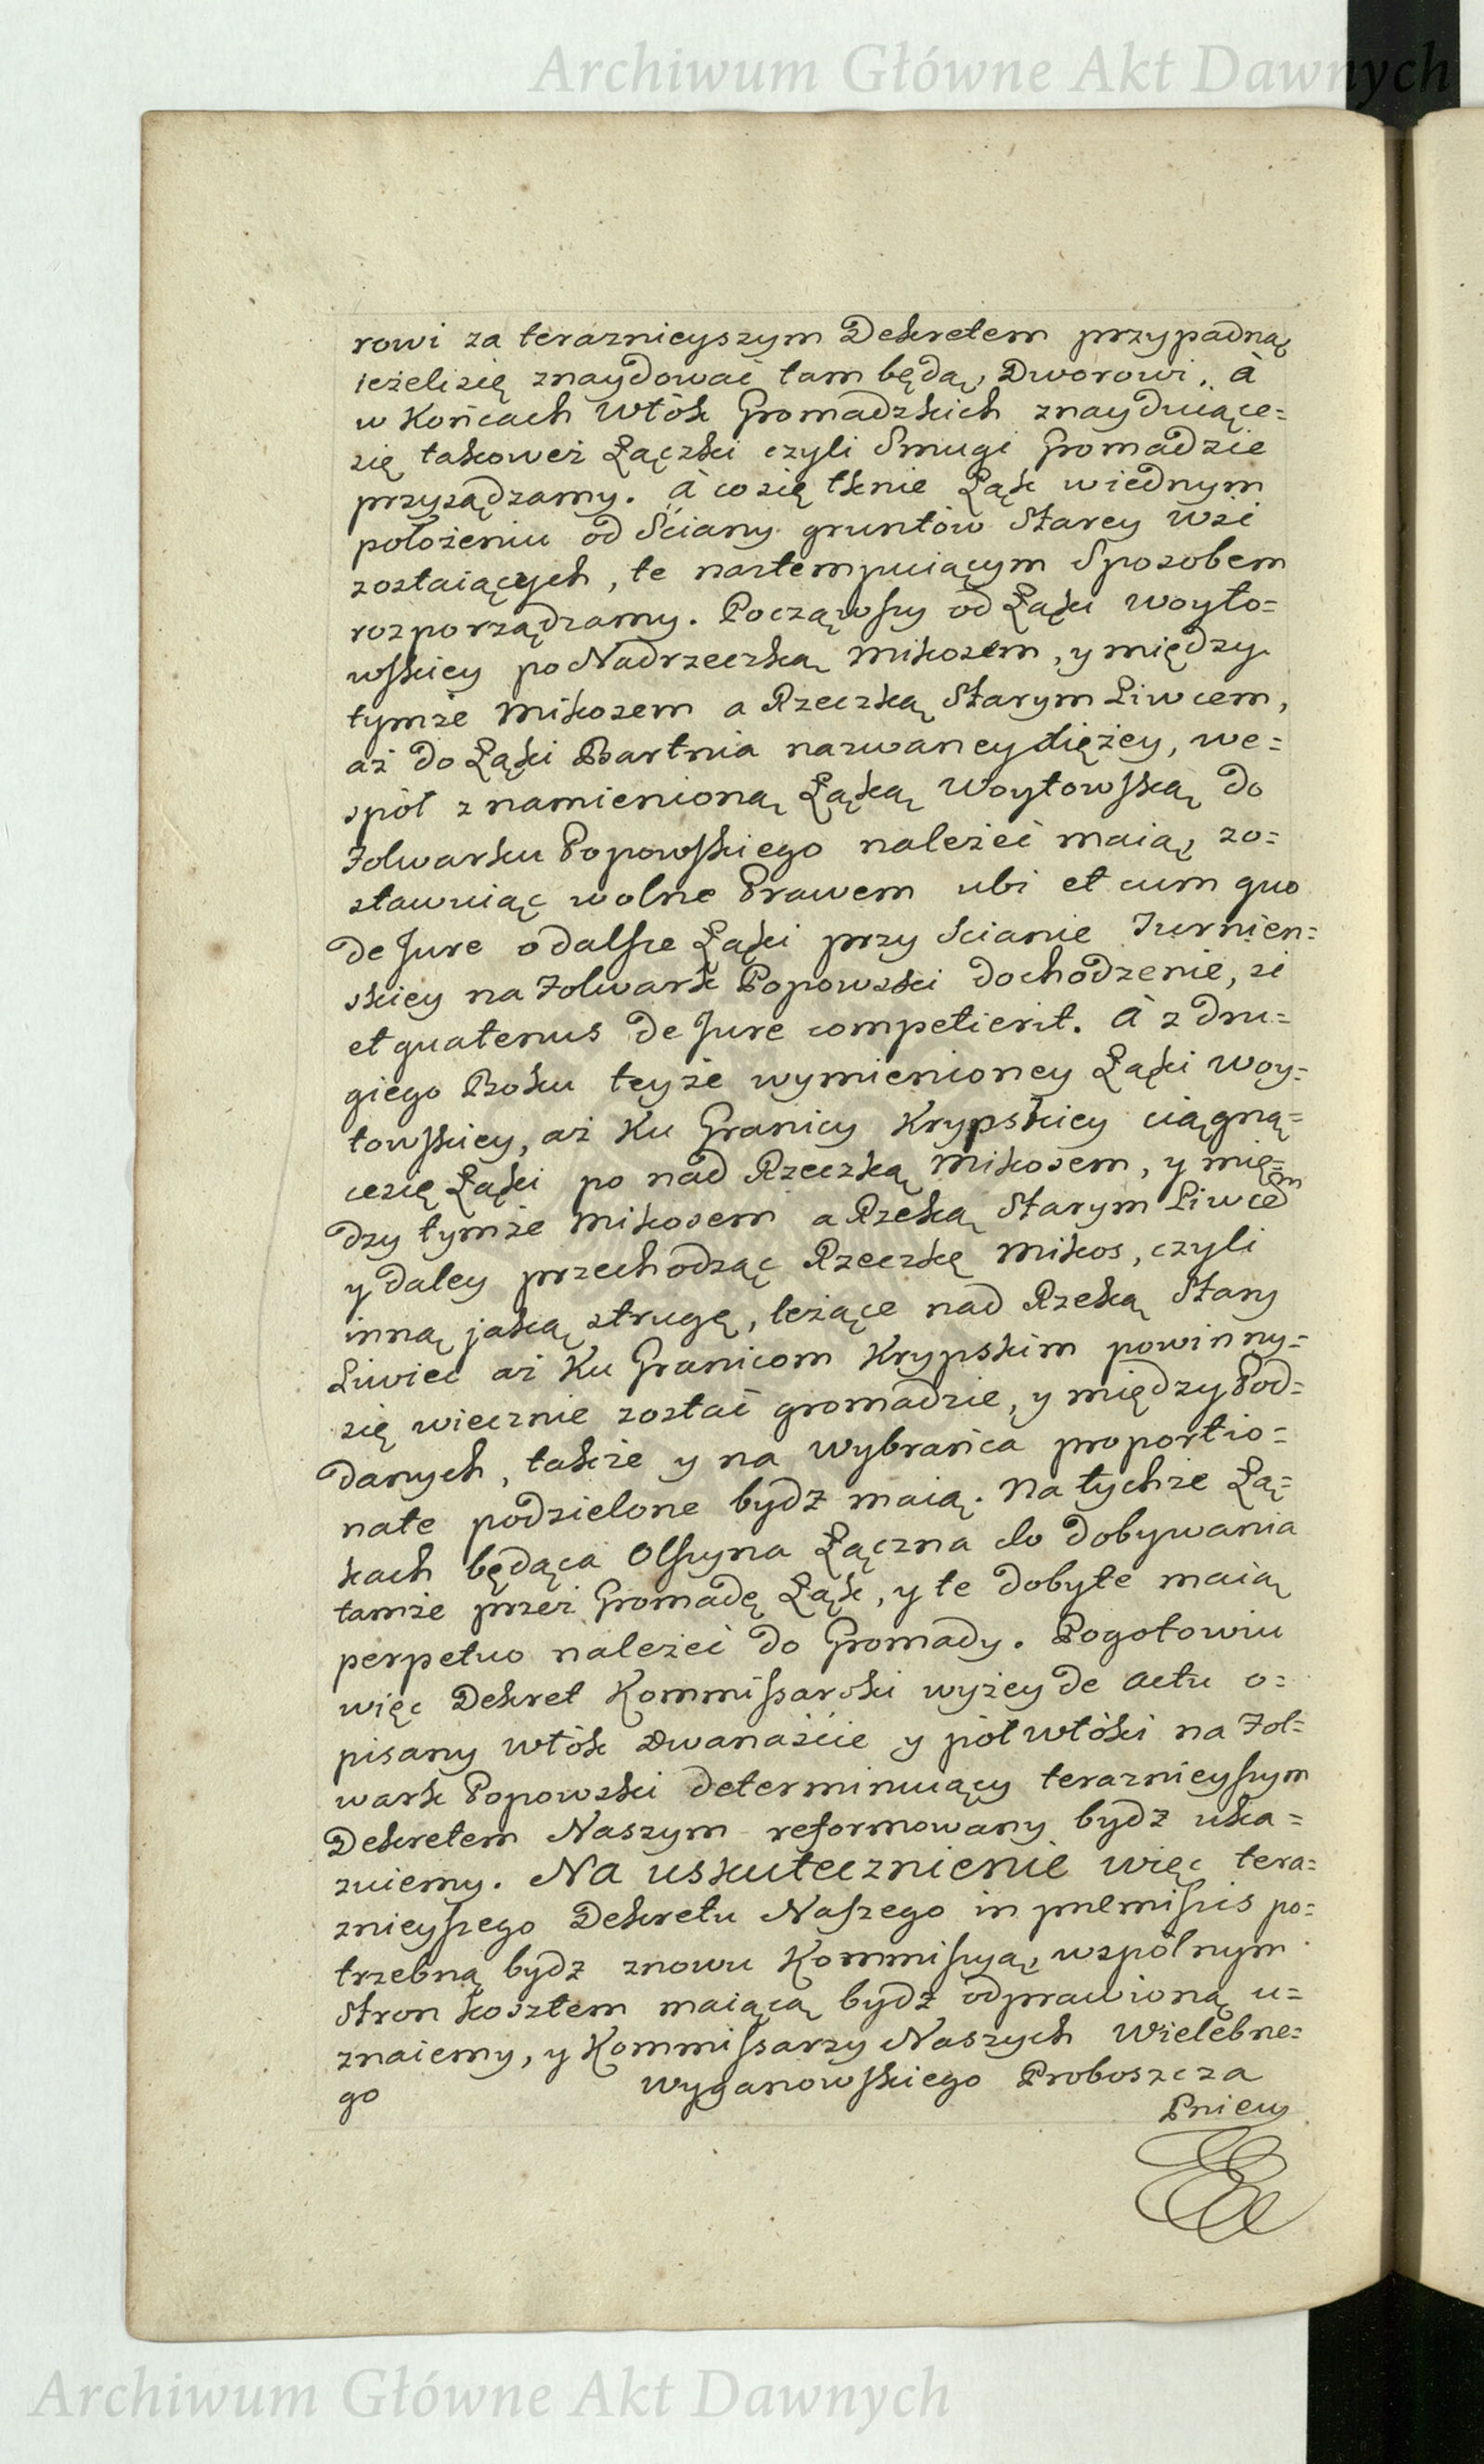 Archiwum Główne Akt Dawnych
rowi za teraznieyszym Dekretem przypadną
ieżeli się znaydować tam będą, Dworowi, à
w Końcach Włók Gromadzkich znayduiące=
się takoweż Łączki czyli Smugi Gromadzie
przysądzamy. à co się tknie Łąk w iednym
położeniu od Ściany gruntów Starey Wsi
zostaiących, te nastempuiącym Sposobem
rozporządzamy. Począwszy od Łąki Woyto=
wskiey po Nadrzeczką Mikosem, y między
tymże Mikosem a Rzeczką Starym Liwcem,
aż do Łąki Bartnia nazwaney tięzey, we=
spół z namienioną Łąką Woytowską do
Folwarku Popowskiego należeć maią, zo=
stawuiąc wolne Prawem ubi et cum quo
de Jure o dalsze Łąki przy Ścianie Jurnien=
skiey na Folwark Popowski dochodzenie, si
et quatenus de Jure competierit. à z dru=
giego Boku teyże wymienioney Łąki Woy=
towskiey, aż Ku Granicy Krypskiey ciągną=
cesię Łąki po nad Rzeczką Mikosem, y mię=
dzy tymże Mikosem a Rzeką Starym Liwcem
y daley przechodząc Rzeczkę Mikos, czyli
inną jaką strugę, leżące nad Rzeką Stary
Liwiec aż Ku Granicom Krypskim powinny=
się wiecznie zostać gromadzie, y między Pod=
danych, także y na Wybrańca proportio=
nate podzielone bydź maią. Na tychże Łą=
kach będąca Olszyna Łączna do dobywania
tamże przez Gromadę Łąk, y te dobyte maią
perpetuo należeć do Gromady. Pogotowiu
więc Dekret Kommissarski wyżey de actu o=
pisany włók dwanaście y pół włóki na Fol=
wark Popowski determinuiący teraznieyszym
Dekretem Naszym reformowany bydź uka=
zuiemy. Na uskutecznienie więc tera=
znieyszego Dekretu Naszego in praemissis po=
trzebną bydź znowu Kommissyą, wspólnym
Stron kosztem maiącą bydź odprawioną u=
znaiemy, y Kommissarzy Naszych Wielebne=
go Wyganowskiego Proboszcza
Pniew
Archiwum Główne Akt Dawnych